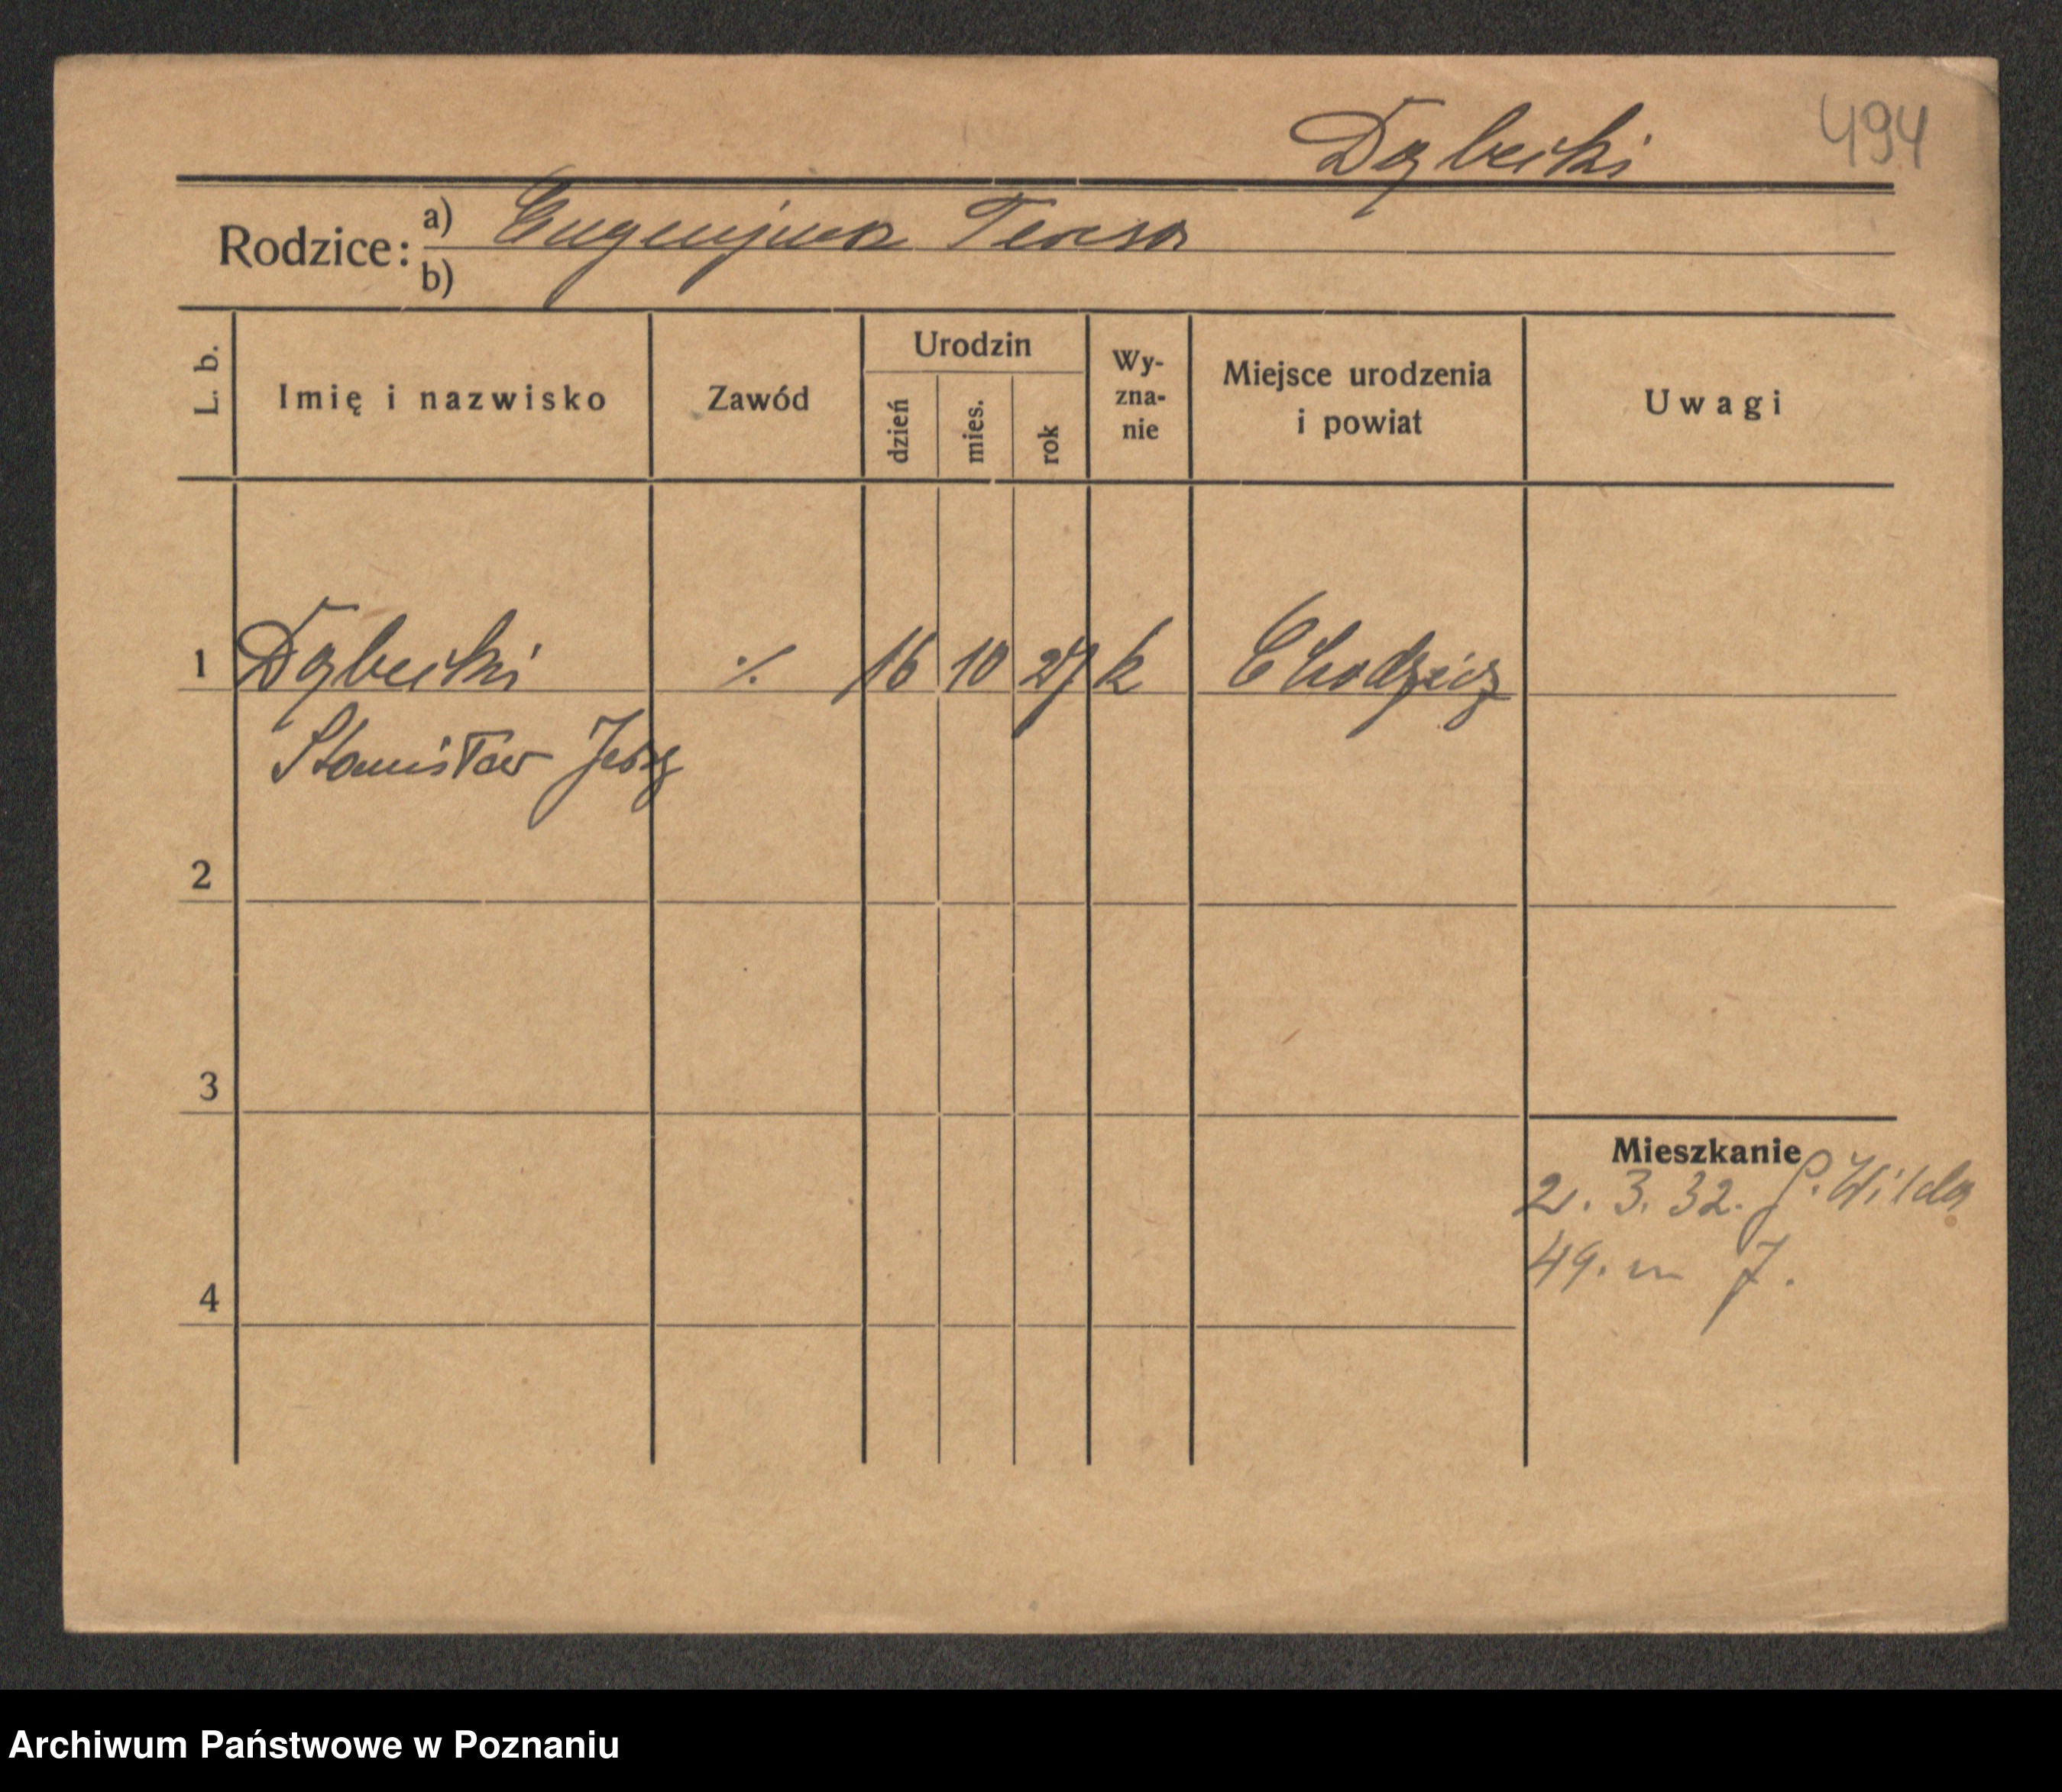 494
Dąbecki
Rodzice:
a) Eugenjusz Teresa
b)
L. b.
Imię i nazwisko
Zawód
Urodzin
dzień
mies.
rok
Wy-
zna-
nie
Miejsce urodzenia
i powiat
Uwagi
1 Dąbecki ./. 16 10 27 k Chodzież
Stanisław Jerzy
2
3
4
Mieszkanie
2. 3. 32. G. Wilda
49. m 7.
Archiwum Państwowe w Poznaniu